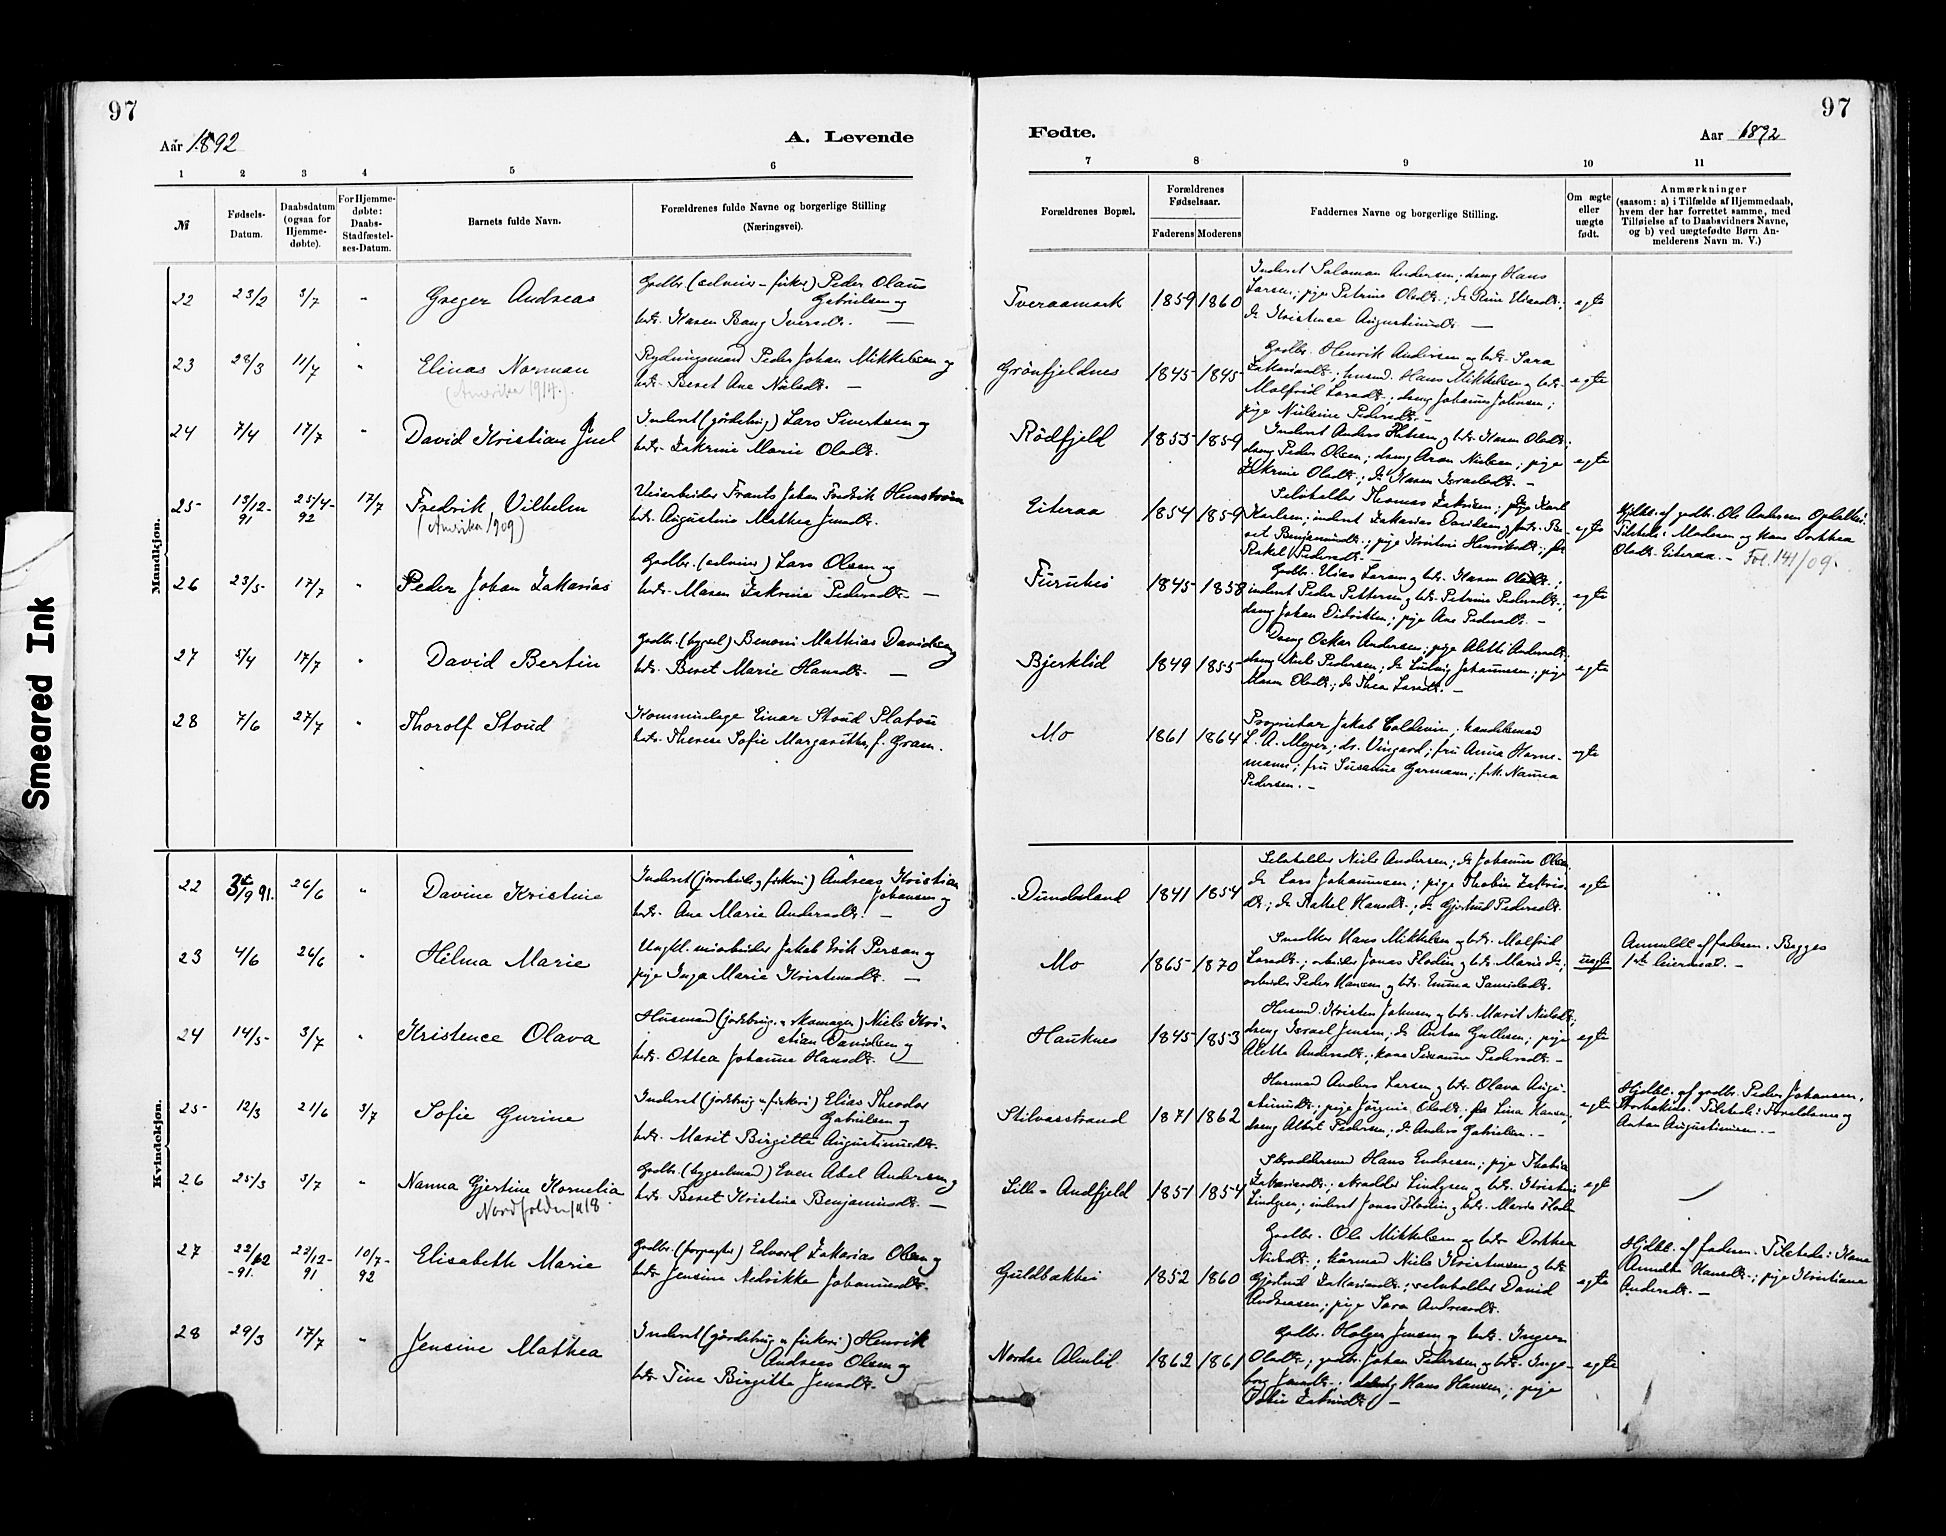 97
97
Aar 1892
A. Levende
Fødte.
Aar 1892
1 2 3 4 5 6 7 8 9 10 11
№
Fødsels-
Datum.
Daabsdatum
(ogsaa for
Hjemme-
døbte).
For Hjemme-
døbte:
Daabs-
Stadfæstel-
ses-Datum.
Barnets fulde Navn.
Forældrenes fulde Navne og borgerlige Stilling
(Næringsvei).
Forældrenes Bopæl.
Forældrenes
Fødselsaar.
Faderens Moderens
Faddernes Navne og borgerlige Stilling.
Om ægte
eller
uægte
født.
Anmærkninger
(saasom: a) i Tilfælde af Hjemmedaab,
hvem der har forrettet samme, med
Tilføielse af to Daabsvidners Navne,
og b) ved uægtefødte Børn An-
melderens Navn m. V.)
Mandkjøn.
22 23/2 3/7 " Greger Andreas
Gaardbr. (selveier - fisker) Peder Olaus
Gabrielsen og
hstr. Karen Bang Iversdtr. —
Tveraamark 1859 1860
Inderst Salomon Andersen; dreng Hans
Larsen; pige Petrine Olsdtr.;
do Kristence Augustinusdtr. —
egte
23 28/3 11/7 " Elinas Norman
(Amerika 1914.)
Rydningsmand Peder Johan Mikkelsen og
hstr. Beret Ane Nilsdtr. —
Grønfjeldnes 1845 1845
Gaardbr. Henrik Andersen og hstr. Sara
Zakariasdtr.; husmd. Hans Mikkelsen og hstr.
Malfrid Larsdtr.; dreng Johannes Johnsen;
pige Nilsine Pedersdtr. —
egte
24 7/4 17/7 " David Kristian Juel
Inderst (jordbrug) Lars Sivertsen og
hstr. Zakrine Marie Olsdtr.
Rödfjeld 1855 1859
Inderst Anders Olsen og hstr. Karen Olsdtr.;
dreng Peder Olsen; dreng Aron Nielsen; pige
Zakrine Olsdtr.; do Karen Israelsdtr. —
egte
25 13/12-91 25/4-92 17/7 Fredrik Vilhelm
(Amerika 1909)
Veiarbeider Frants Johan Fredrik Hemström
hstr. Augustine Mathea Jensdtr.
Eiteraa 1854 1859
Selvholder Thomas Zakrisen; Karl
Karlsen; inderst Zakarias Davidsen og hstr. Be-
ret Benjaminsdtr.; pige Kristine Henriksdtr.;
Rakel Pedersdtr. —
egte
Hjdbt. af gaardbr. Ole Andersen
Tilstede: Moderen og kone Dorthea
Olsdtr. Eiteraa. — Fol. 141/09.
26 23/5 17/7 " Peder Johan Zakarias
Gaardbr. (selveier) Lars Olsen og
hstr. Maren Zakrine Pedersdtr. —
Furuhei 1845 1858
Gaardbr. Elias Larsen og hstr. Karen Olsdtr.;
inderst Peder Pettersen og hstr. Petrine Pedersdtr.;
dreng Johan Didriksen; pige Ane Pedersdtr. —
egte
27 5/4 17/7 " David Bertin
Gaardbr. (bygsel) Benoni Mathias Davidsen og
hstr. Beret Marie Hansdtr. —
Bjerklid 1849 1855
Dreng Oskar Andersen; pige Alette Andersdtr.;
dreng Nils Pedersen; do Ludvig Johannesen; pige
Maren Olsdtr.; do Thea Larsdtr. —
egte
28 7/6 27/7 " Thorolf Stoud
Kommunelæge Einar Stoud Platou
hstr. Therese Sofie Margarethe, f. Gram.
Mo 1861 1864
Proprietær Jakob Coldevin; handelsmand
L. A. Meyer; dr. Vingard; fru Anna Horne-
mann; fru Susanne Germann; frk. Nanna
Pedersen. —
egte
Kvindekjøn.
22 3/9 91. 26/6 " Davine Kristine
Inderst (jordarbeide og fiskeri) Andreas Kristian
Johansen og
hstr. Ane Marie Andersdtr. —
Dunderland 1841 1854
Selvholder Niels Andersen; do Johannes Olsen,
do Lars Johannesen; pige Thobie Zakris-
dtr.; do Rakel Hansdtr.; do Gjertrud Pedersdtr.
egte
23 4/6 26/6 " Helma Marie
Ungkl. veiarbeider Jakob Erik Persson og
pige Inga Marie Kristensdtr. —
Mo 1865 1870
Snedker Hans Mikkelsen og hstr. Malfrid
Larsdtr.; arbeider Jonas Flodin og hstr. Marie do;
arbeider Peder Hansen og hstr. Emma Samuelsdtr.
uegte
Anmeldt af faderen. Begges
1ste leiermaal. —
24 14/5 3/7 " Kristence Olava
Husmand (jordbrug. - skomager) Niels Kri-
stian Danielsen og
hstr. Ottea Johanne Hansdtr.
Hauknes 1845 1853
Husmd. Kristen Johnsen og hstr. Marit Nielsdtr.;
dreng Israel Jensen; do Anton Gullesen; pige
Alette Andersdtr.; kone Susanne Pedersdtr. —
egte
25 12/3 21/6 3/7 Sofie Gurine
Inderst (jordbrug - fiskeri) Elias Theodor
Gabrielsen og
hstr. Marit Birgitte Augustinusdtr.
Stilvasstrand 1871 1862
Husmand Anders Larsen og hstr. Olava Augu-
stinusdtr.; pige Jörgine Olsdtr.; Lina Hansen;
dreng Albert Pedersen; do Anders Gabrielsen. —
egte
Hjdbt. af gaardbr. Peder Johansen,
Storbakken. Tilstede: Forældrene og
Anton Augustinusen. —
26 25/3 3/7 " Nanna Gjertine Kornelia
Nordfolden 1918
Gaardbr. (bygselmand) Even Abel Andersen og
hstr. Beret Kristine Benjaminsdtr. —
Lille-Andfjeld 1851 1854
Skræddersvend Hans Endresen; pige Thalia
Zakariasdtr.; skrædder Lindgren og hstr. Kristine
Lindgren; inderst Jonas Flodin og hstr. Marie Flodin
egte
27 22/12-91. 23/12-91 10/7-92 Elisabeth Marie
Gaardbr. (forpagter) Edvard Zakarias Olsen og
hstr. Jensine Nedrikke Johannesdtr.
Guldbakhei 1852 1860
Gaardbr. Ole Mikkelsen og hstr. Dorthea
Nielsdtr.; kårmand Niels Kristensen og hstr.
Gjertrud Zakariasdtr.; selvholder David
Andreasen; pige Sara Andreasdtr.
egte
Hjdbt. af faderen. Tilstede: Kone
Anneke Hansdtr.; pige Kristiane
Andersdtr. —
28 29/3 17/7 " Jensine Mathea
Inderst (gårdsbrug & fiskeri) Henrik
Andreas Olsen og
hstr. Tine Birgitte Jensdtr.
Nordre Almlid. 1862 1861
Gaardbr. Holger Jensen og hstr. Inger
Olsdtr.; gaardbr. Johan Pedersen og hstr. Inge-
borg Jensdtr.; dreng Hans Hansen; pige
Zakrisdtr. —
egte
Smeared Ink